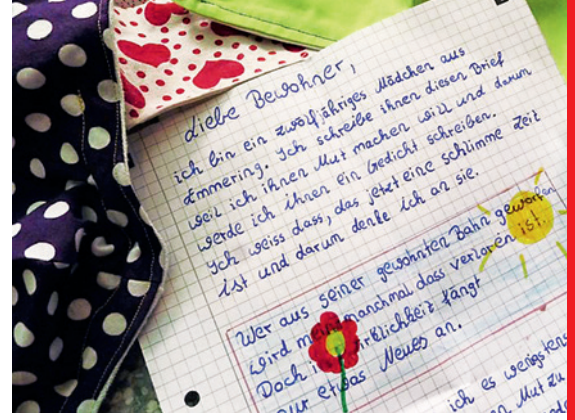 Liebe Bewohner,
ich bin ein zwölfjähriges Mädchen aus
Emmering. Ich schreibe ihnen diesen Brief
weil ich ihnen Mut machen will und darum
werde ich ihnen ein Gedicht schreiben.
Ich weiss dass, das jetzt eine schlimme Zeit
ist und darum denke ich an sie.
Wer aus seiner gewohnten Bahn geworfen
wird meint manchmal dass verloren ist.
Doch in Wirklichkeit fängt
nur etwas Neues an.
ich es wenigstens
Mut zu